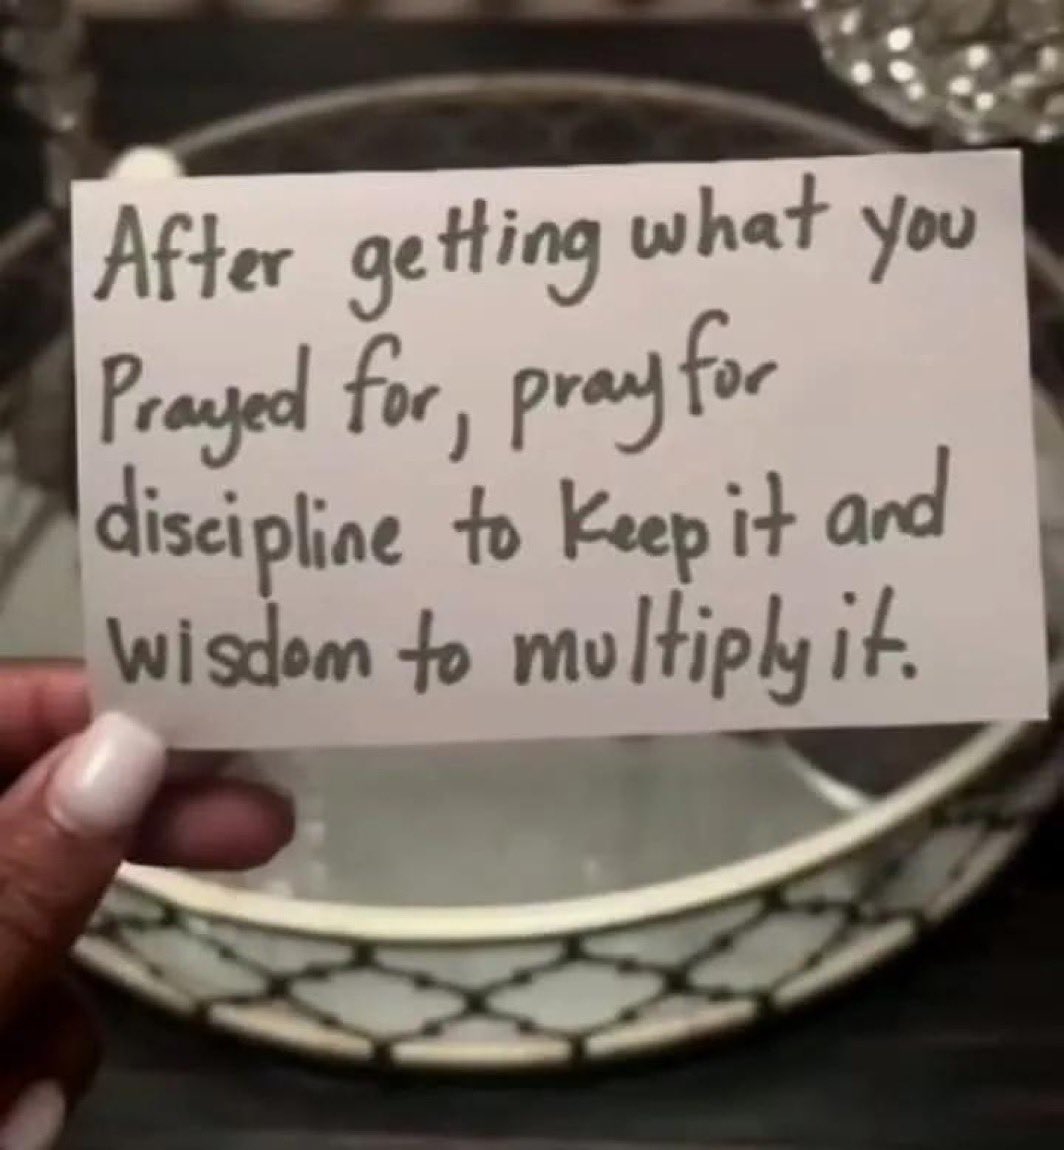 After getting what you
Prayed for, pray for
discipline to Keep it and
wisdom to multiply it.